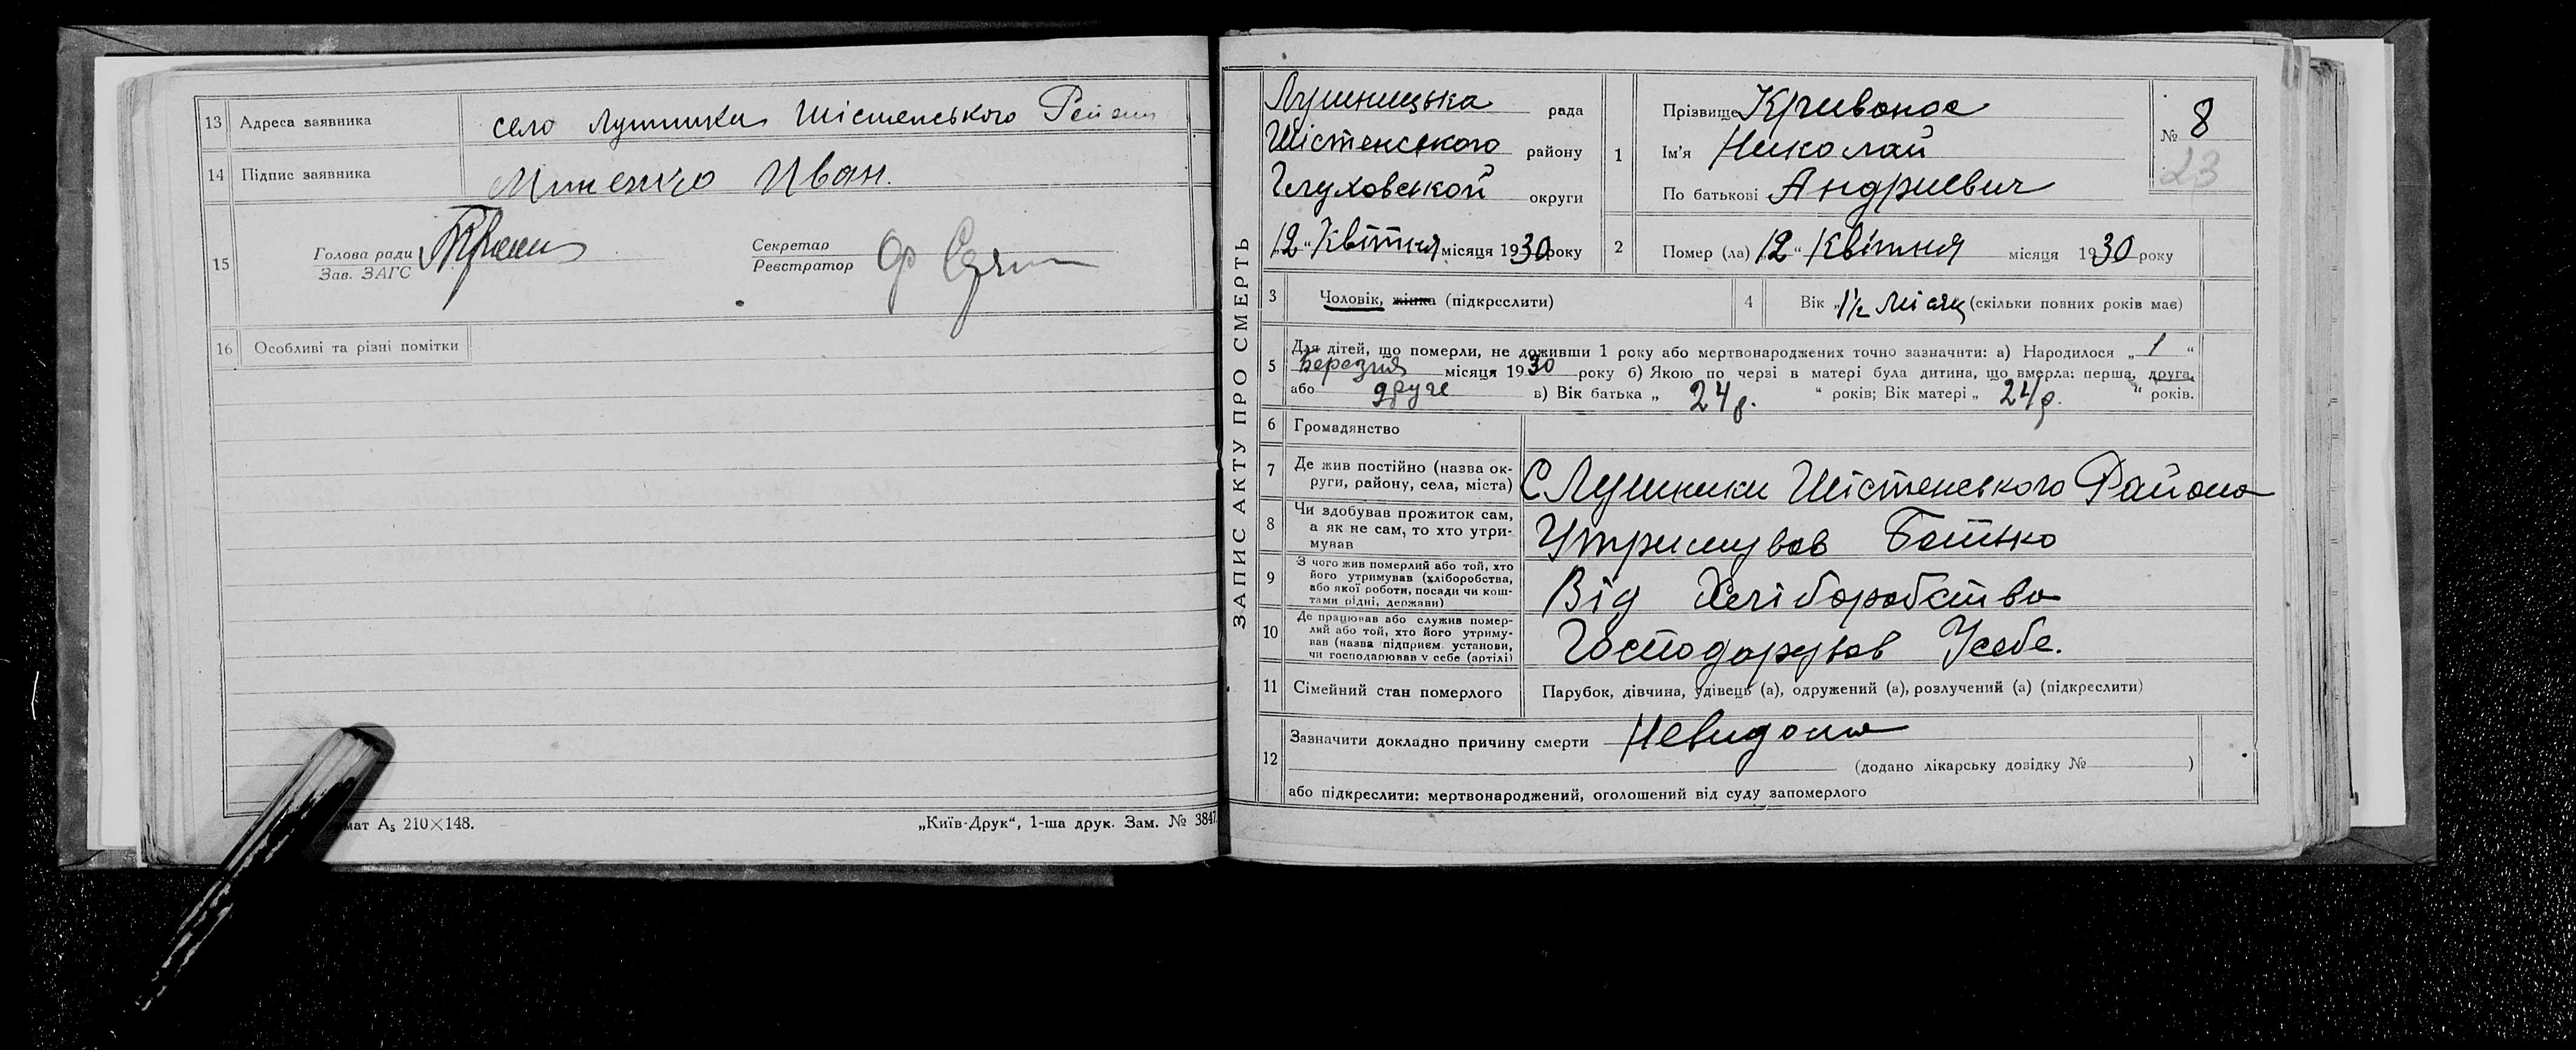 13 Адреса заявника село Лушники Шістенського Району
14 Підпис заявника Миненко Иван.
15 Голова ради
Зав. ЗАГС
Секретар
Реєстратор
16 Особливі та різні помітки
мат А5 210×148.
„Київ-Друк“, 1-ша друк. Зам. № 3847
ЗАПИС АКТУ ПРО СМЕРТЬ
Лушницька рада
Шістенського району
Глуховської округи
„12“ Квітня місяця 1930 року
1 Прізвище Кривонос
Ім'я Николай
По батькові Андриевич
№ 8
23
2 Помер (ла) „12“ Квітня місяця 1930 року
3 Чоловік, жінка (підкреслити)
4 Вік „1½ місяц (скільки повних років має)
5 Для дітей, що померли, не доживши 1 року або мертвонароджених точно зазначити: а) Народилося „1“
Березня місяця 1930 року б) Якою по черзі в матері була дитина, що вмерла: перша, друга,
або друге в) Вік батька „24 р.“ років; Вік матері „24 р.“ років.
6 Громадянство
7 Де жив постійно (назва ок-
руги, району, села, міста) С Лушники Шістенського Району
8 Чи здобував прожиток сам,
а як не сам, то хто утри-
мував Утримував Батько
9 З чого жив померлий або той, хто
його утримував (хліборобства,
або якої роботи, посади чи кош-
тами рідні, держави) Від Хліборобства
10 Де працював або служив помер-
лий або той, хто його утриму-
вав (назва підприєм. установи,
чи господарював у себе (артілі) Господарував Усебе.
11 Сімейний стан померлого Парубок, дівчина, удівець (а), одружений (а), розлучений (а) (підкреслити)
12 Зазначити докладно причину смерти Невидома
(додано лікарську довідку № )
або підкреслити: мертвонароджений, оголошений від суду запомерлого